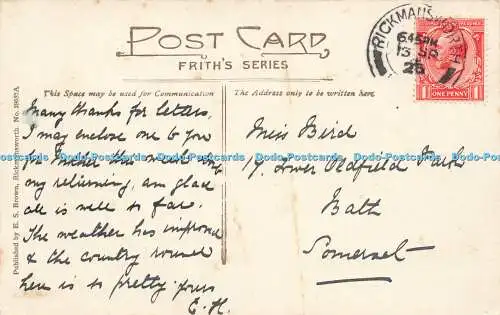 POST CARD
FRITH'S SERIES
RICKMANSWORTH
6.45 PM
13 SP
25
ONE PENNY
This Space may be used for Communication
The Address only to be written here.
Published by E. S. Brown, Rickmansworth. No.
Many thanks for letters,
I may enclose one to you
this
my returning, am glad
all is well so far.
The weather has improved
& the country round
here is so pretty yours
E.H.
Miss Bird
Lower Oldfield Park
Bath
Somerset
Dodo-Postcards Dodo-Postcards Dodo-Postcards Dodo-Postcards Dodo-Postcards